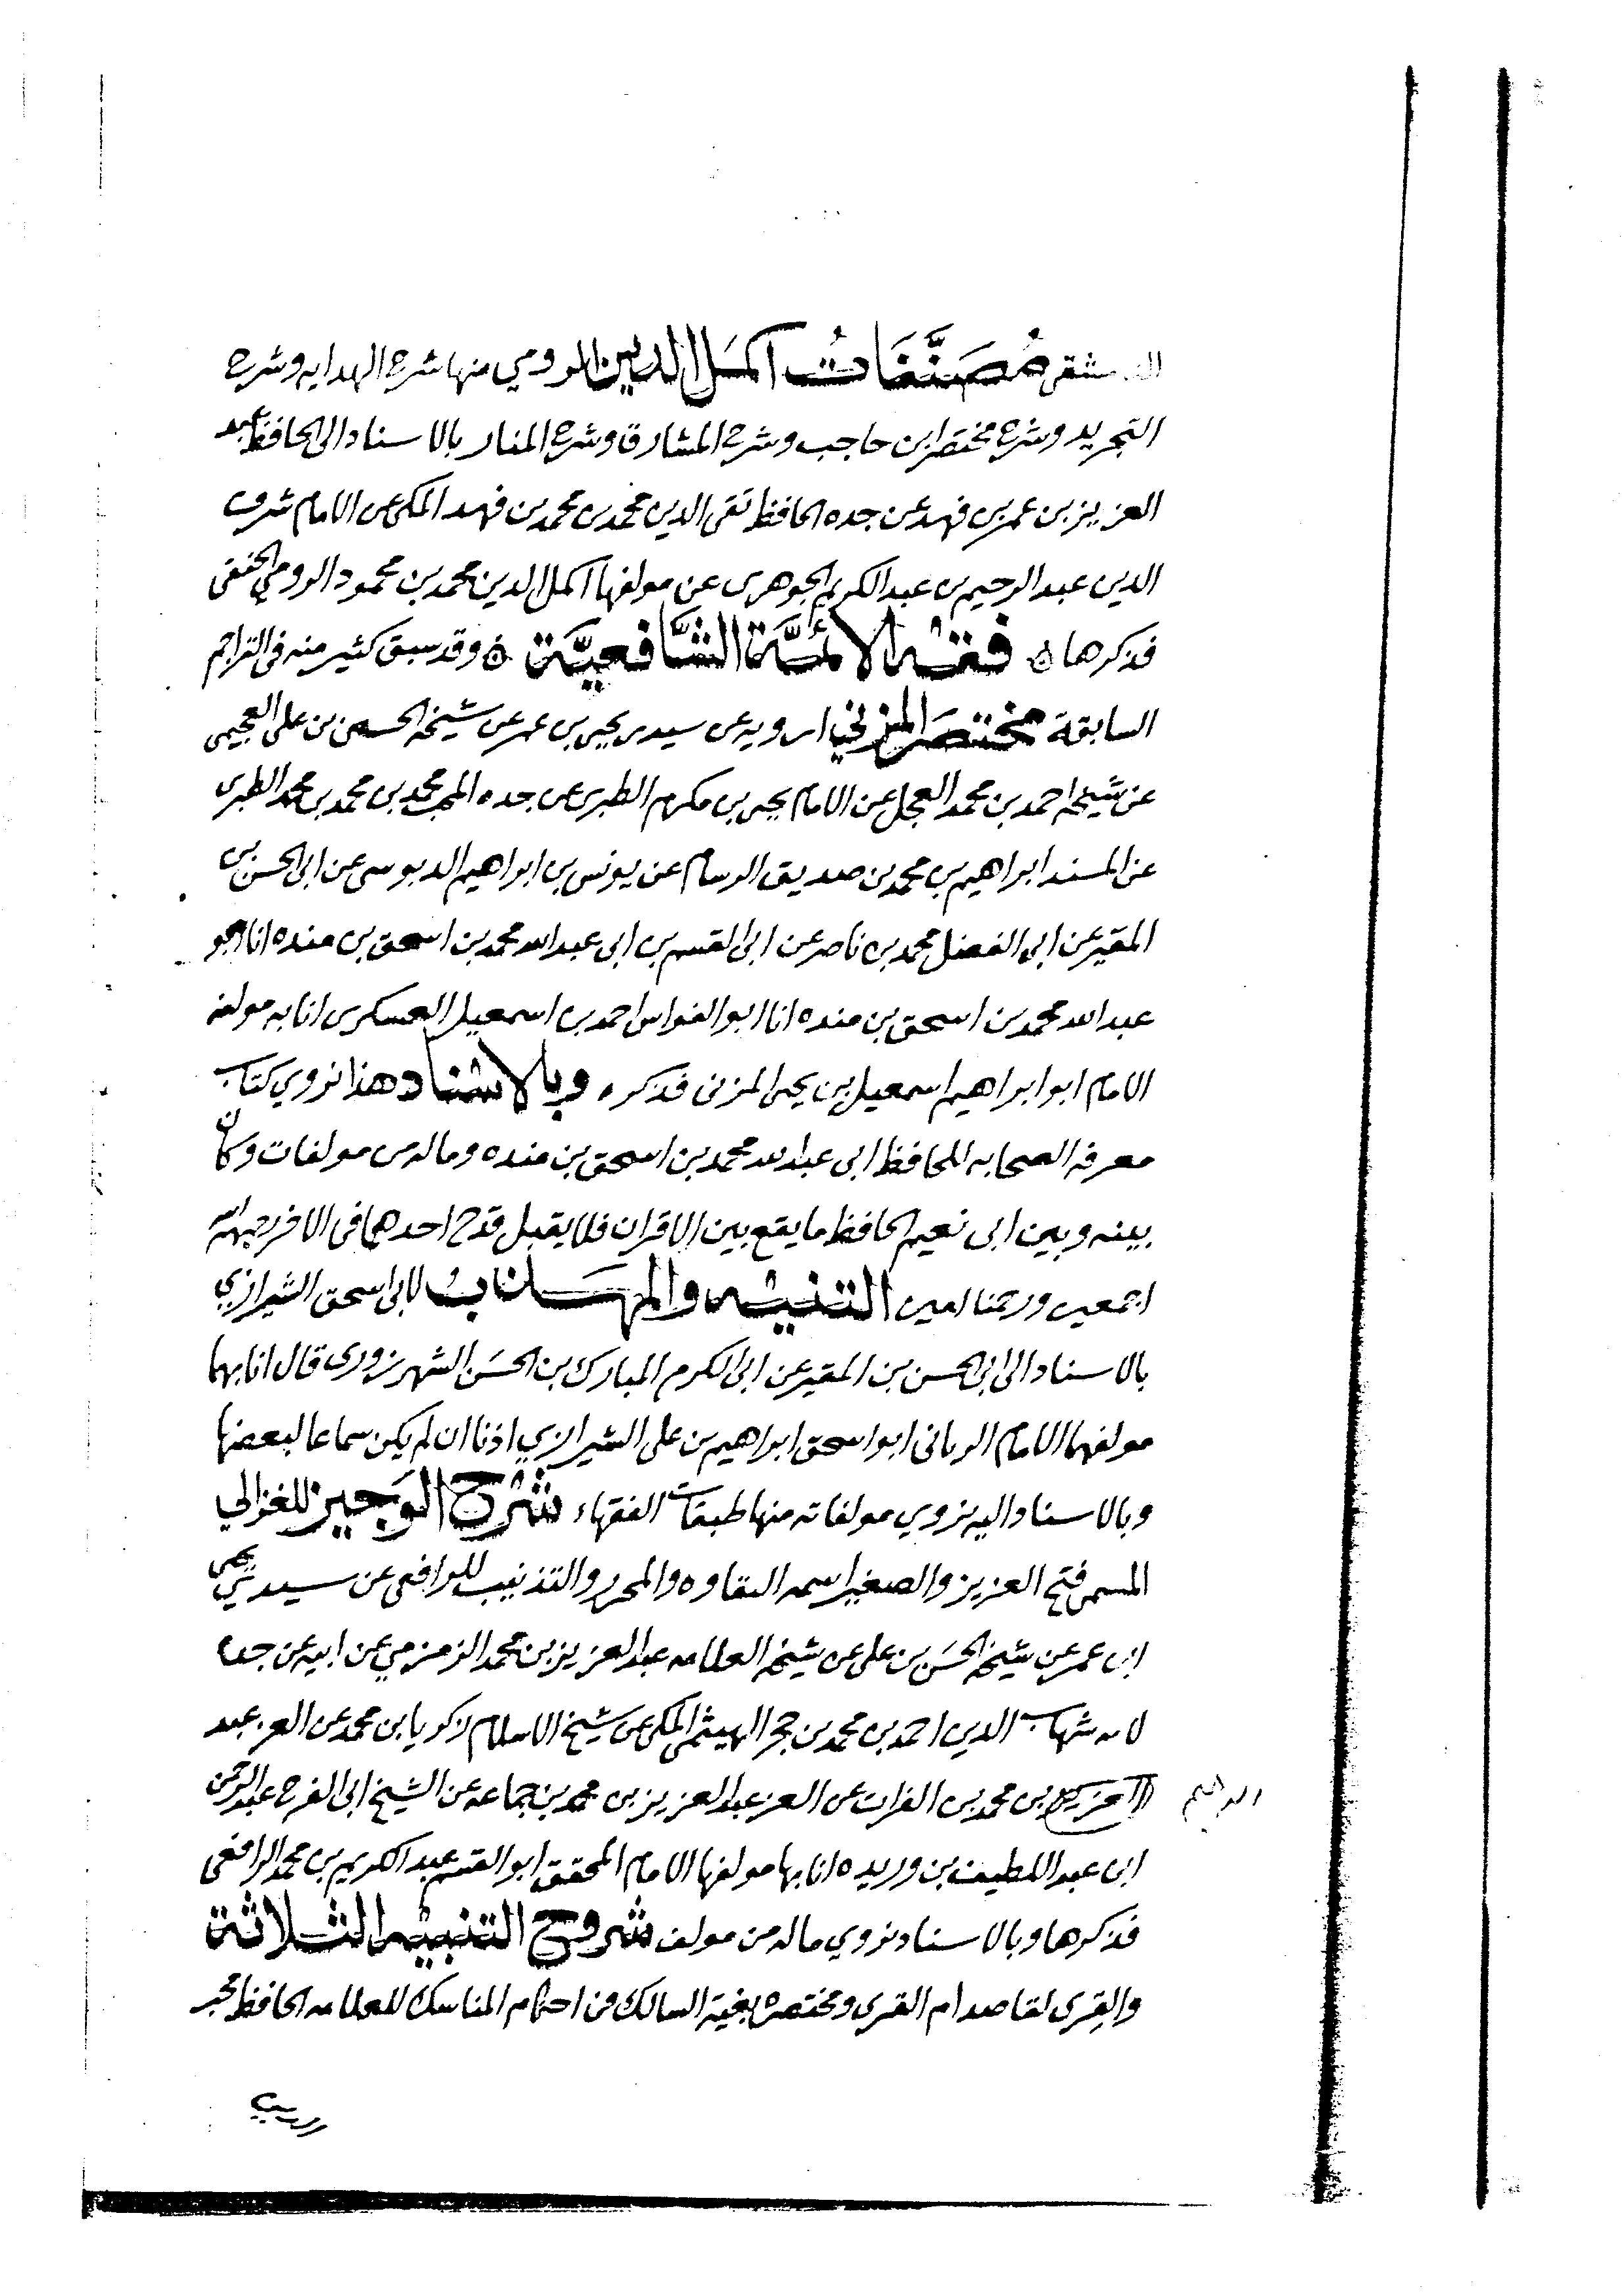 الدمشقي مُصَنَّفَاتُ اكمَل الدين الرومي منها شرح الهدايه وشرح
التجريد وشرح مختصر ابن حاجب وشرح المشارق وشرح المنار بالاسناد الى الحافظ عبد
العزيز بن عمر بن فهد عن جده الحافظ تقي الدين محمد بن محمد بن فهد المكي عن الامام شرف
الدين عبد الرحيم بن عبد الكريم الجوهري عن مولفها اكمل الدين محمد بن محمود الرومي الحنفي
فذكرها فقه الائمَّة الشَّافعيَّة وقد سبق كثير منه في التراجم
السابقة مختصَر المزني ارويه عن سيدي يحيى بن عمر عن شيخه الحسن بن علي العجيمي
عن شيخه احمد بن محمد العجل عن الامام يحيى بن مكرم الطبري عن جده المحب محمد بن محمد بن محمد الطبري
عن المسند ابراهيم بن محمد بن صديق الرسام عن يونس بن ابراهيم الدبوسي عن ابي الحسن بن
المقير عن ابي الفضل محمد بن ناصر عن ابي القسم بن ابي عبد الله محمد بن اسحق بن منده انا ابو
عبد الله محمد بن اسحق بن منده انا ابو الفوارس احمد بن اسمعيل العسكري انا به مولفه
الامام ابو ابراهيم اسمعيل بن يحيى المزني فذكره وبالاسناد هذا نروي كتاب
معرفه الصحابه للحافظ ابي عبد الله محمد بن اسحق بن منده وماله من مولفات وكان
بينه وبين ابي نعيم الحافظ ما يقع بين الاقران فلا يقبل قدح احدهما في الاخر رحمهم الله
اجمعين ورحمنا امين التنبيه والمهَذب لابي اسحق الشيرازي
بالاسناد الى ابي الحسن بن المقير عن ابي الكرم المبارك بن الحسَن الشهرزوري قال انا بهما
مولفهما الامام الرباني ابو اسحق ابراهيم بن علي الشيرازي اذنا ان لم يكن سماعا لبعضها
وبالاسناد اليه نروي مولفاته منها طبقات الفقهاء شرح الوَجيز للغزالي
المسمى فتح العزيز والصغير اسمه النقاوه والمحرر والتذنيب للرافعي عن سيدي يحيى
ابن عمر عن شيخه الحسَن بن علي عن شيخه العلامه عبد العزيز بن محمد الزمزمي عن ابيه عن جده
لامه شهاب الدين احمد بن محمد بن حجر الهيثمي المكي عن شيخ الاسلام زكريا بن محمد عن العز عبد
العزيز بن محمد بن الفرات عن العز عبد العزيز بن محمد بن جماعه عن الشيخ ابي الفرج عبد الرحمن
الرحيم
ابن عبد اللطيف بن وريده انا بها مولفها الامام المحقق ابو القسم عبد الكريم بن محمد الرافعي
فذكرها وبالاسناد نروي ماله من مولف شروح التنبيه الثلاثة
والقِرى لقاصد ام القرى ومختصره بغية السالك من احكام المناسك للعلامه الحافظ محب